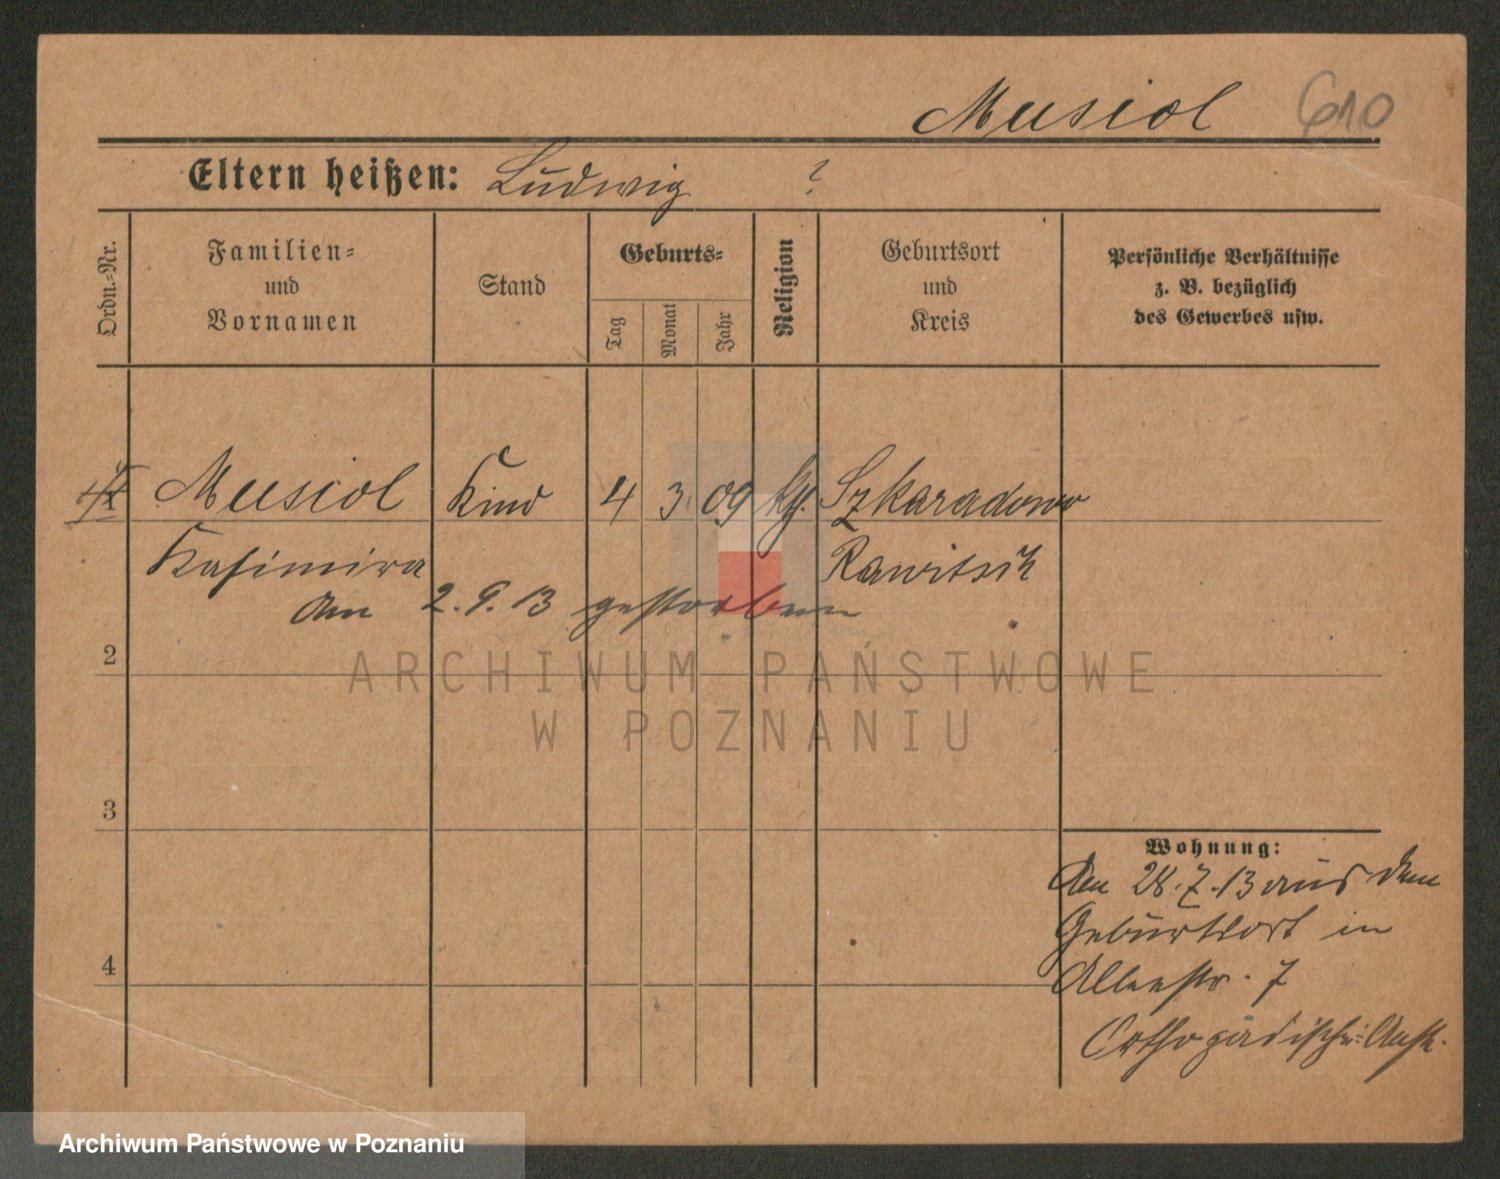 Musiol 610
Eltern heißen: Ludwig ?
Ordn.-Nr.
Familien-
und
Vornamen
Stand
Geburts-
Tag
Monat
Jahr
Religion
Geburtsort
und
Kreis
Persönliche Verhältnisse
z. B. bezüglich
des Gewerbes usw.
1 Musiol Kind 4 3. 09 kth. Szkaradowo
Kasimira Rawitsch
Am 2.9.13 gestorben
2
ARCHIWUM PAŃSTWOWE
W POZNANIU
3
Wohnung:
Am 28.7.13 aus dem
Geburtsort in
4
Alleestr. 7
Orthopädische Anst.
Archiwum Państwowe w Poznaniu